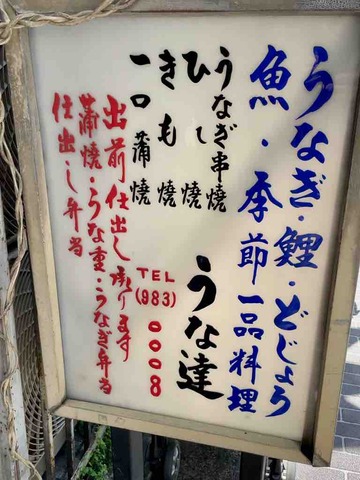 うなぎ・鯉・どじょう
魚・季節一品料理
うなぎ串焼
ひし焼
きも焼
一口蒲焼
うな達
TEL
(983)
0008
出前仕出し承ります
蒲焼・うな重・うなぎ弁当
仕出し弁当